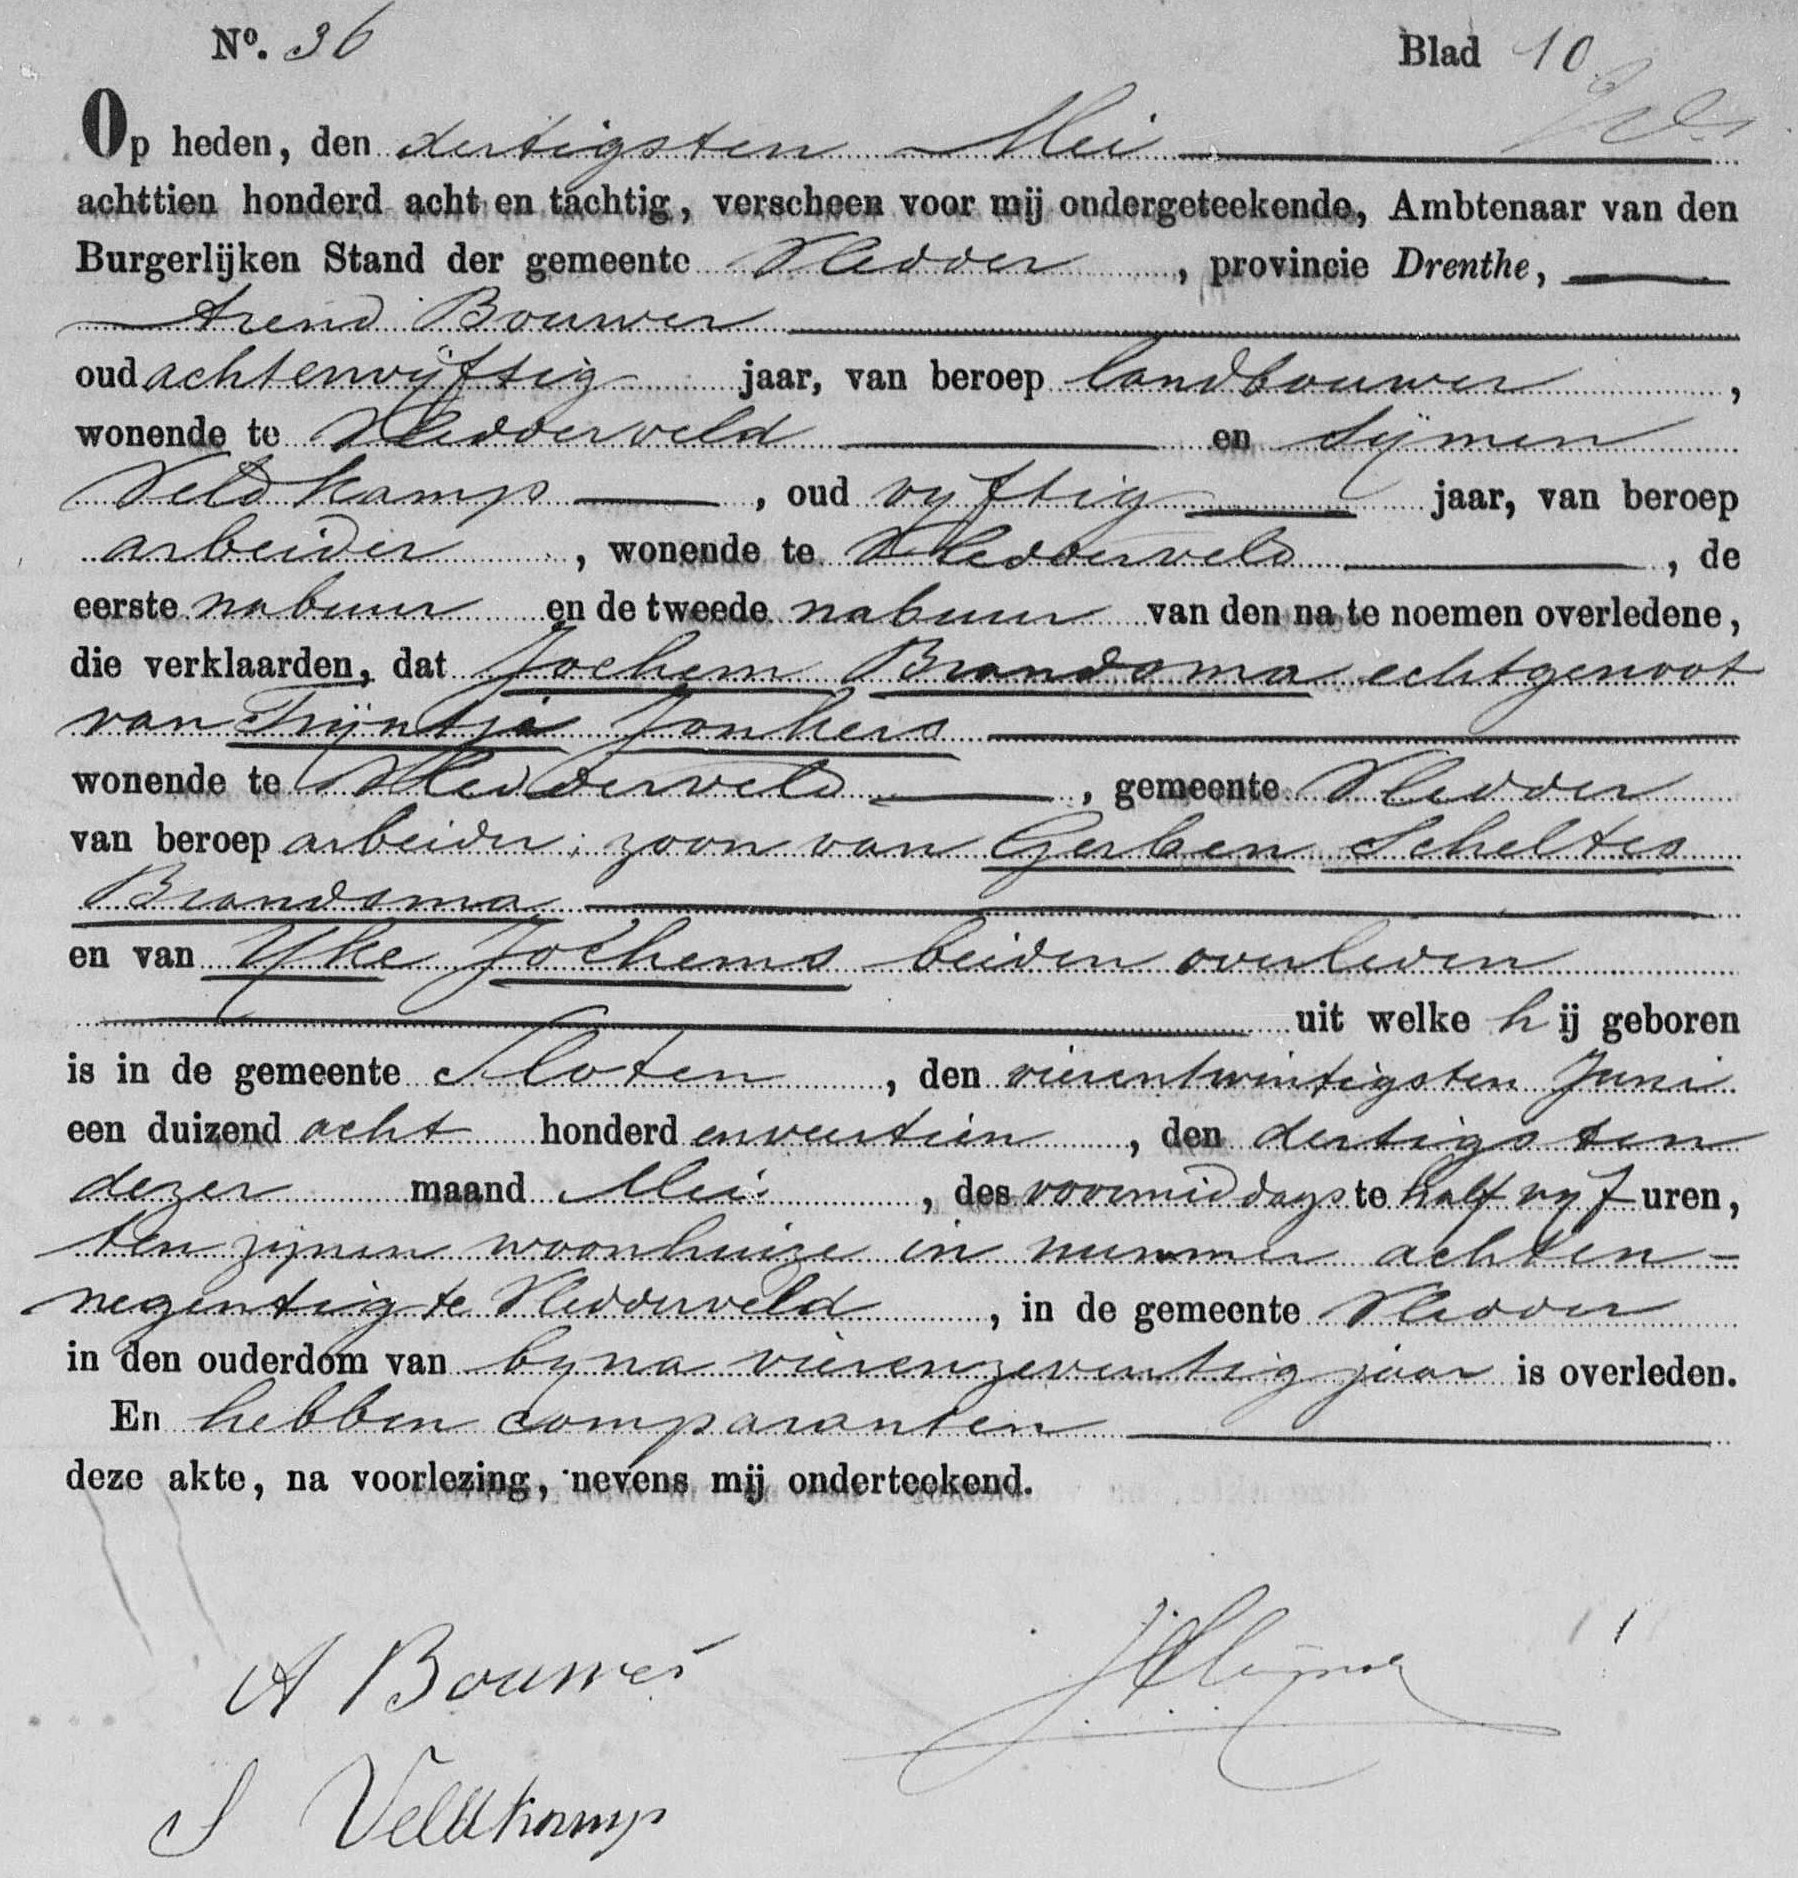 Nº. 36 Blad 10
Op heden, den dertigsten Mei
achttien honderd acht en tachtig, verscheen voor mij ondergeteekende, Ambtenaar van den
Burgerlijken Stand der gemeente Vledder, provincie Drenthe,
Arend Bouwer
oud achtenvijftig jaar, van beroep landbouwer,
wonende te Vledderveld en Sijmen
Veldkamp, oud vyftig jaar, van beroep
arbeider, wonende te Vledderveld, de
eerste nabuur en de tweede nabuur van den na te noemen overledene,
die verklaarden, dat Jochem Brandsma echtgenoot
van Trijntje Jonkers
wonende te Vledderveld, gemeente Vledder
van beroep arbeider; zoon van Gerben Scheltes
Brandsma
en van Yke Jochems beiden overleden
uit welke hij geboren
is in de gemeente Sloten, den vierentwintigsten Juni
een duizend acht honderd enveertien, den dertigsten
dezer maand Mei, des voormiddags te half vyf uren,
ten zijnen woonhuize in nummer achten-
negentig te Vledderveld, in de gemeente Vledder
in den ouderdom van byna vierenzeventig jaar is overleden.
En hebben comparanten
deze akte, na voorlezing, nevens mij onderteekend.
A Bouwer
S Veldkamp